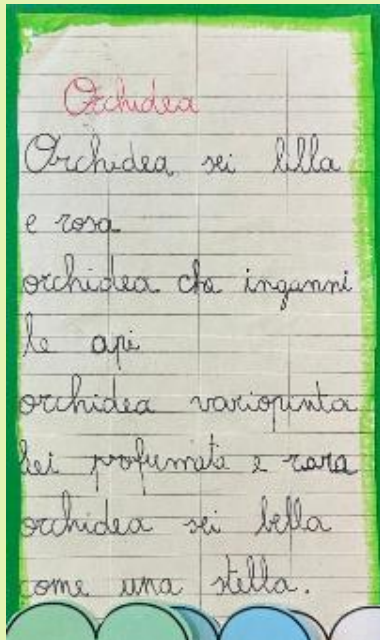 Orchidea
Orchidea sei lilla
e rosa
orchidea che inganni
le api
orchidea variopinta
sei profumata e rara
orchidea sei bella
come una stella.